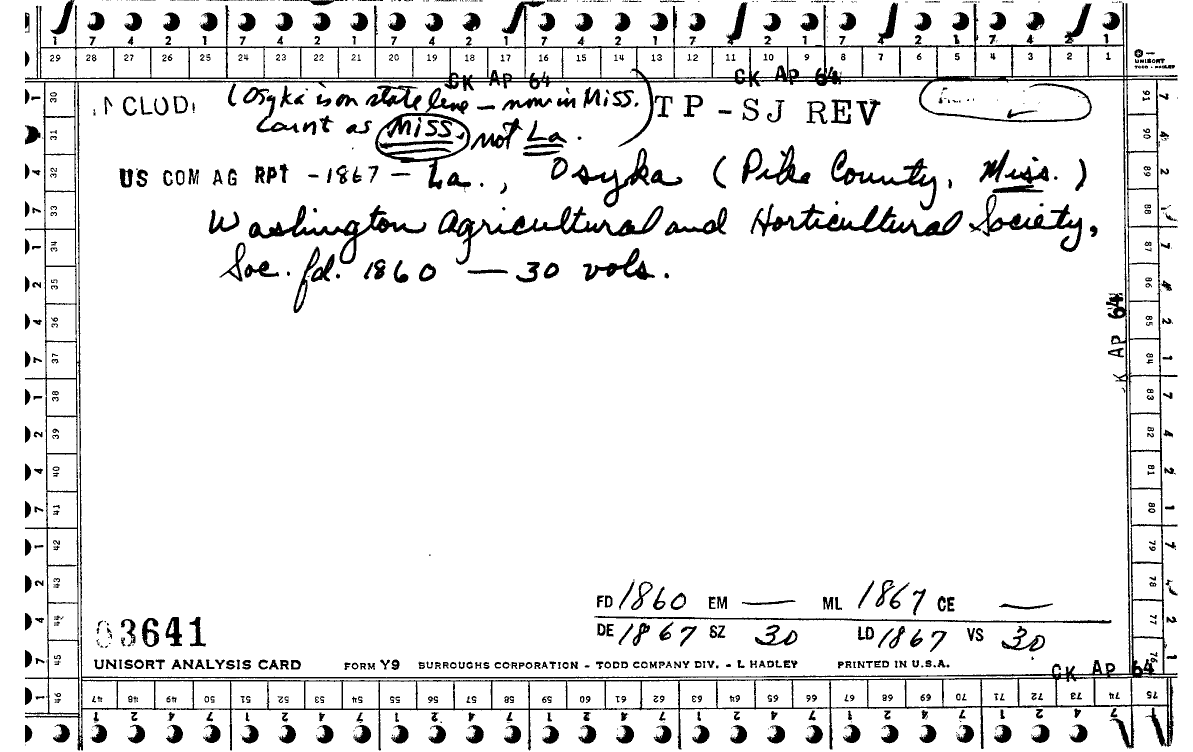 7 4 2 1 7 4 2 1 7 4 2 1 7 4 2 1 7 4 2 1 7 4 2 1 7 4 2 1
29 28 27 26 25 24 23 22 21 20 19 18 17 16 15 14 13 12 11 10 9 8 7 6 5 4 3 2 1
UNISORT
TODD - HADLEY
CK AP 64 CK AP 64
(Osyka is on state line - now in Miss.
Count as Miss. not La.)
TP - SJ REV
US COM AG RPT - 1867 - La., Osyka (Pike County, Miss.)
Washington Agricultural and Horticultural Society,
Soc. fd. 1860 — 30 vols.
30 31 32 33 34 35 36 37 38 39 40 41 42 43 44 45 46
91 90 89 88 87 86 85 84 83 82 81 80 79 78 77 76 75
AP 64
FD 1860 EM — ML 1867 CE —
DE 1867 SZ 30 LD 1867 VS 30
03641
UNISORT ANALYSIS CARD FORM Y9 BURROUGHS CORPORATION - TODD COMPANY DIV. - L HADLEY PRINTED IN U.S.A.
CK AP 64
47 48 49 50 51 52 53 54 55 56 57 58 59 60 61 62 63 64 65 66 67 68 69 70 71 72 73 74 75